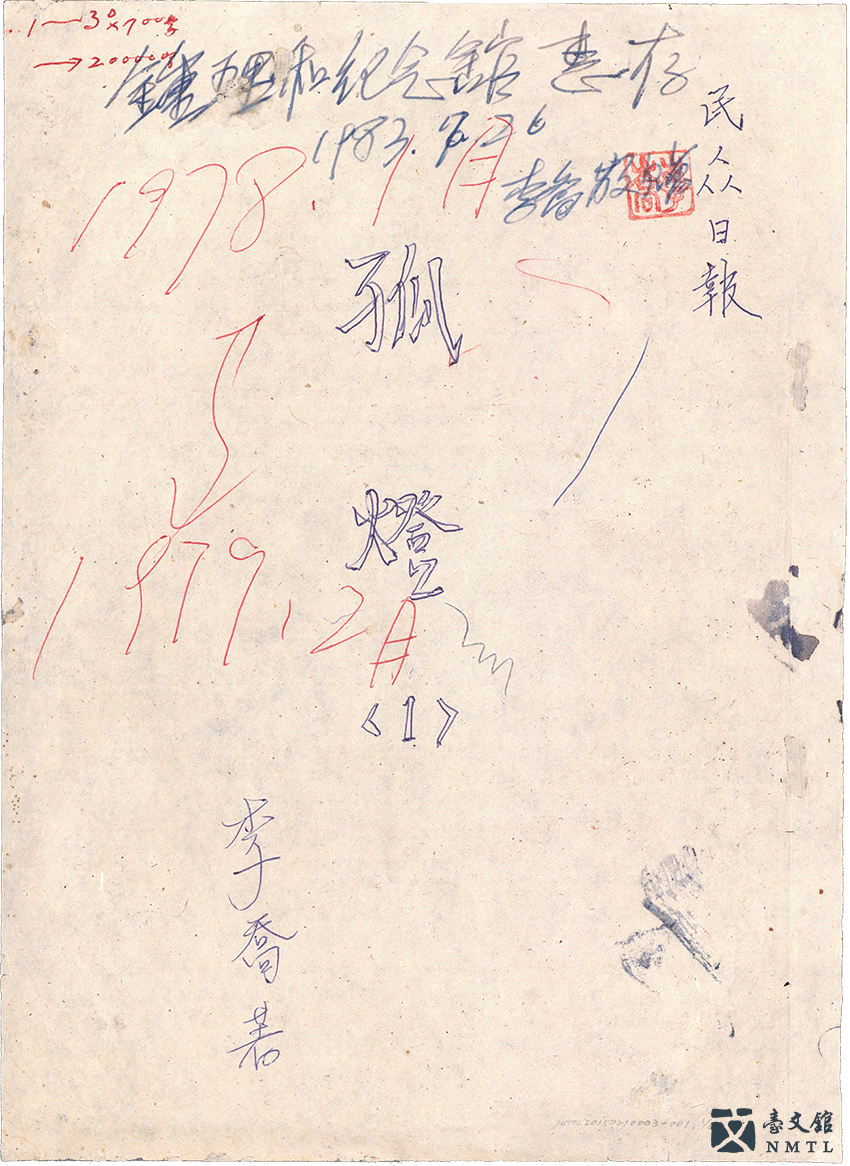 1—3⁰×700字
→200000字
鍾理和紀念館 惠存
1983.7.26
李喬敬贈
民眾日報
1978.1月
孤燈
1979.2月
〈1〉
李喬著
臺文館
NMTL